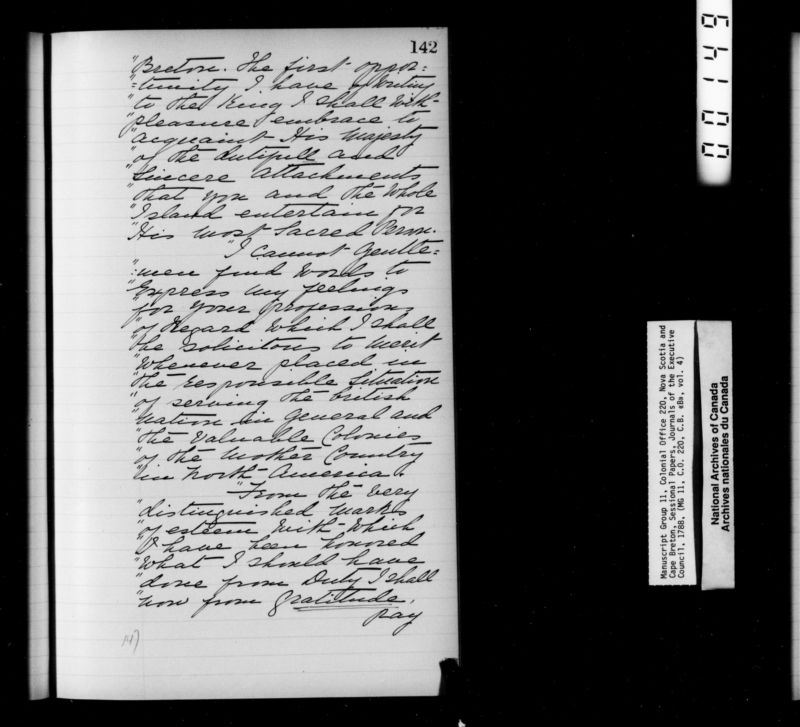 142
"Breton. The first oppor=
"=tunity I have of writing
"to the King I shall with
"pleasure embrace to
"acquaint His Majesty
"of the dutifull and
"Sincere Attachments
"that you and the whole
"Island entertain for
"His most Sacred Person.
"I cannot Gentle=
"=men find words to
"Express my feelings
"for your professions
"of Regard which I shall
"be solicitous to merit
"whenever placed in
"the responsible Situation
"of serving the british
"nation in general and
"the valuable Colonies
"of the Mother Country
"in North America.
"From the very
"distinguished marks
"of esteem with which
"I have been honored
"What I should have
"done from Duty I shall
"now from gratitude.
pay
147
00149
Manuscript Group 11, Colonial Office 220, Nova Scotia and
Cape Breton, Sessional Papers, Journals of the Executive
Council, 1788, (MG 11, C.O. 220, C.B. «B», vol. 4)
National Archives of Canada
Archives nationales du Canada